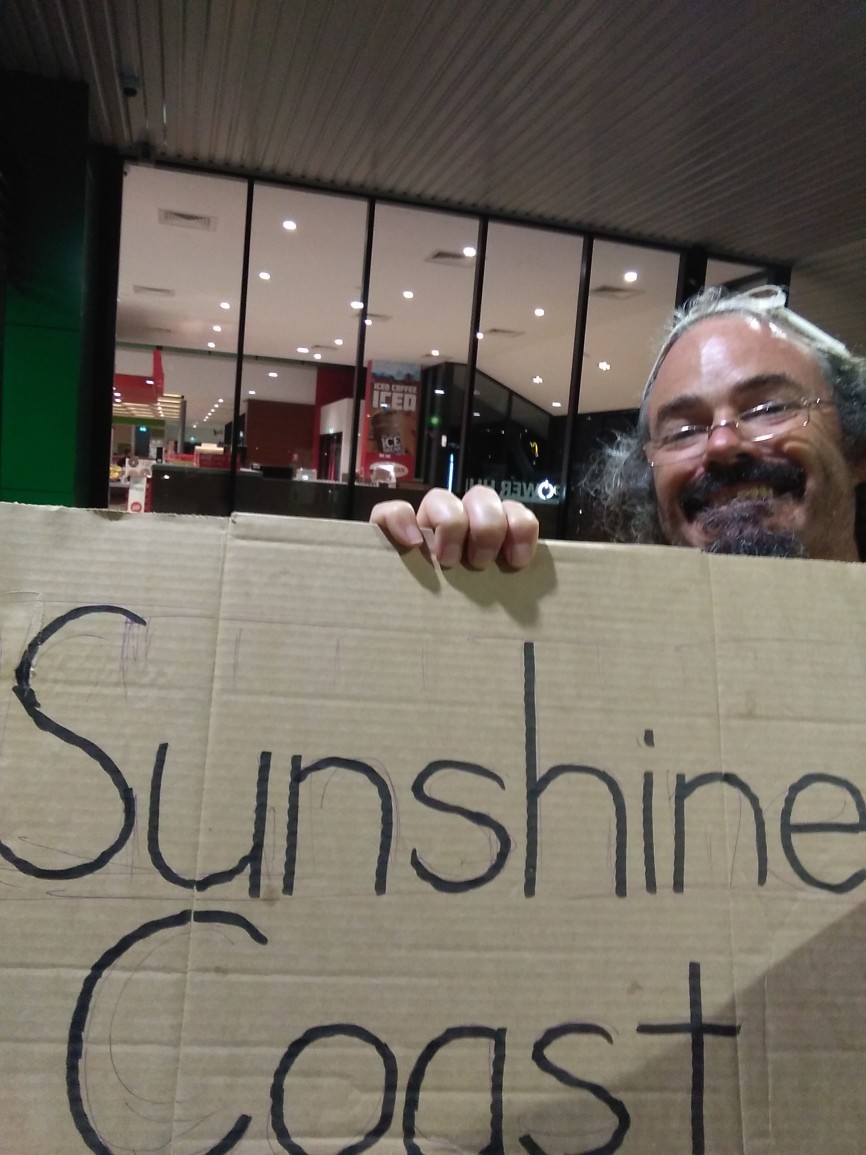 ICED COFFEE
ICED
ICE
Sunshine
Coast